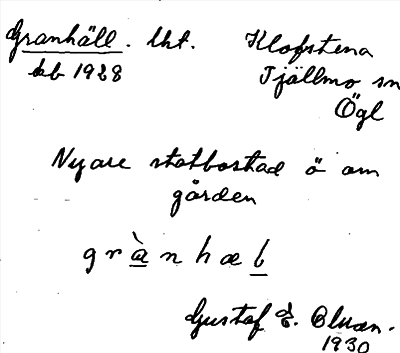 Granhäll. lht. Klofstena
bb 1928 Tjällmo sn
Ögl
Nyare statbostad ö om
gården
gr̀anhæl
Gustaf E.
1930